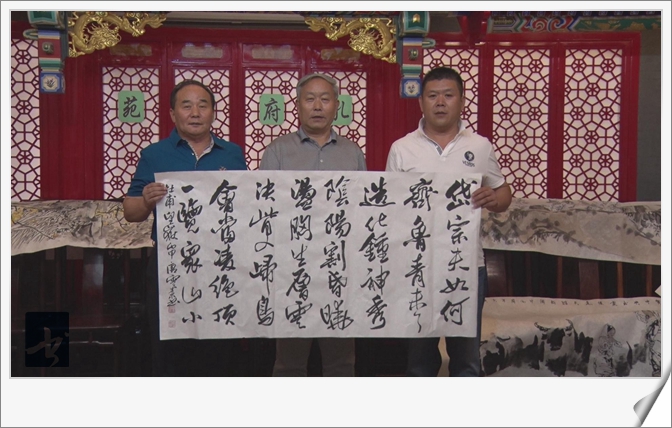 孔府苑
岱宗夫如何
齊魯青未了
造化鍾神秀
陰陽割昏曉
盪胸生層雲
決眥入歸鳥
會當凌絕頂
一覽眾山小
杜甫望嶽